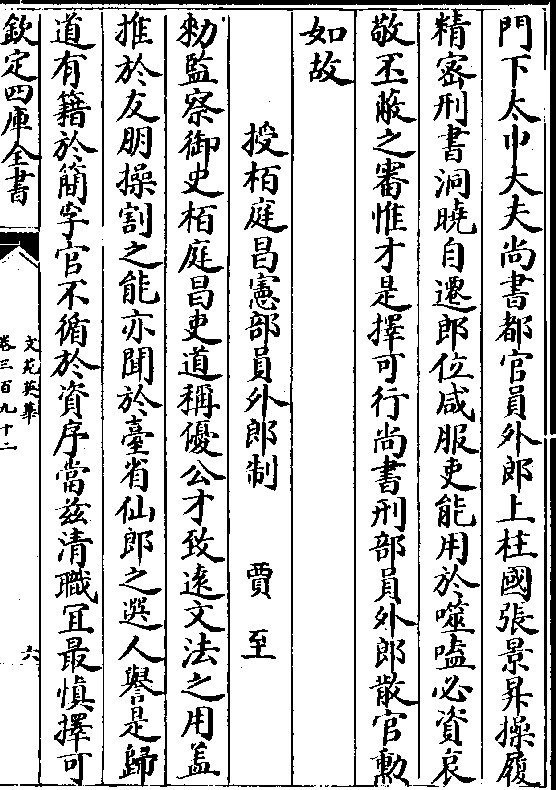 門下太中大夫尚書都官員外郎上柱國張景昇操履
精密刑書洞曉自遷郎位咸服吏能用於噬嗑必資哀
敬丕蔽之審惟才是擇可行尚書刑部員外郎散官勲
如故
授栢庭昌憲部員外郎制 賈至
勑監察御史栢庭昌吏道稱優公才致逺文法之用盖
推於友朋操割之能亦聞於臺省仙郎之選人譽是歸
道有籍於簡孚官不循於資序當兹清職冝最慎擇可
欽定四庫全書
文苑英華
卷三百九十二
六